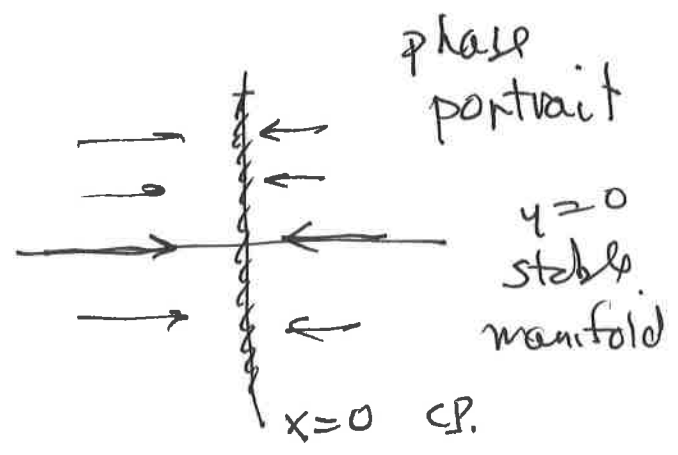 phase
portrait
y=0
stable
manifold
x=0 CP.